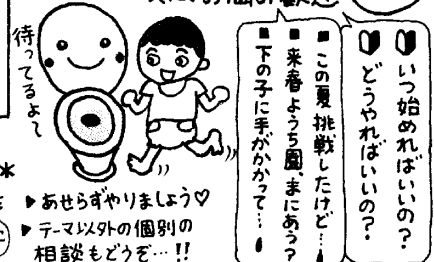 いつ始めればいいの?
どうやればいいの?
■この夏挑戦したけど…
■来春ようち園、まにあう?
■下の子に手がかかって…
待ってるよ〜
▶あせらずやりましょう♡
▶テーマ以外の個別の
相談もどうぞ…!!